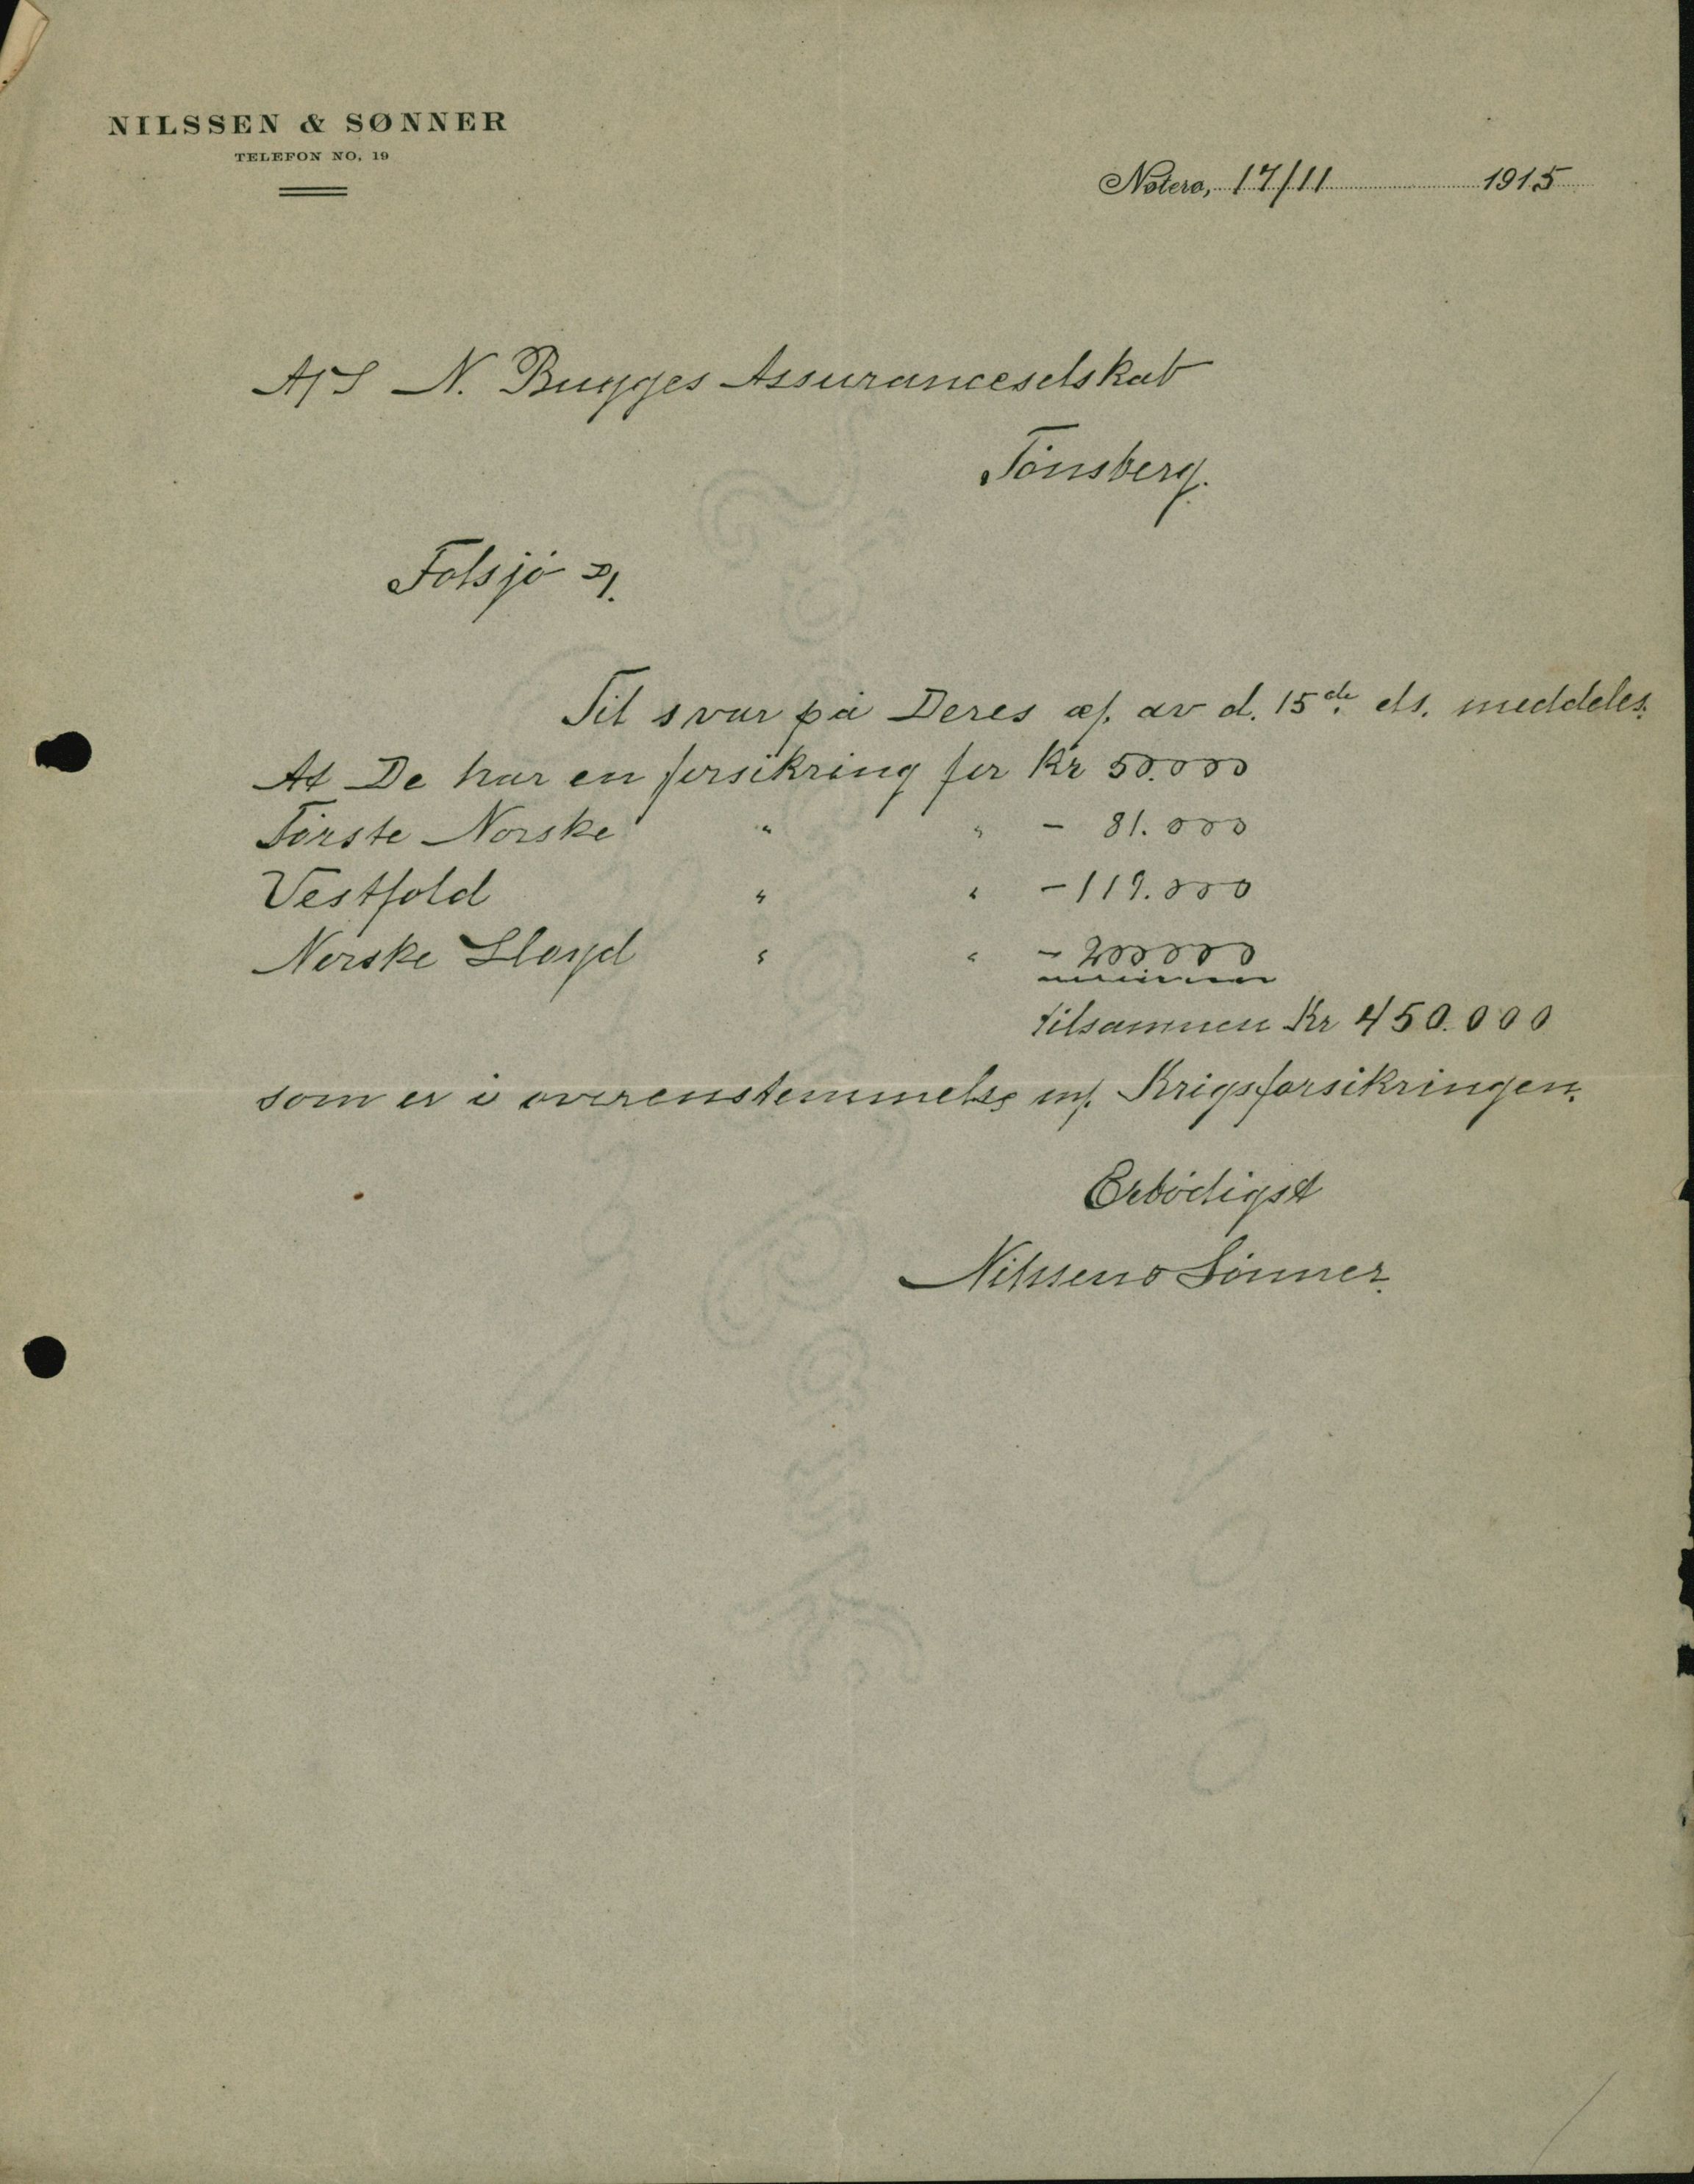 NILSSEN & SØNNER
TELEFON NO. 19
Nøtterø, 17/11 1915
A/S N. Bugges Assuranceselskab
Tönsberg.
Folsjö
Til svar på Deres æ/. av d. 15de ds. meddeles.
At De har en forsikring for Kr 50.000
Förste Norske " " - 81.000
Vestfold " " - 119.000
Norske Lloyd " " - 200000
tilsammen Kr 450.000
som er i overenstemmelse m/. Krigsforsikringen.
Erbödigst
Nilssen & Sönner.